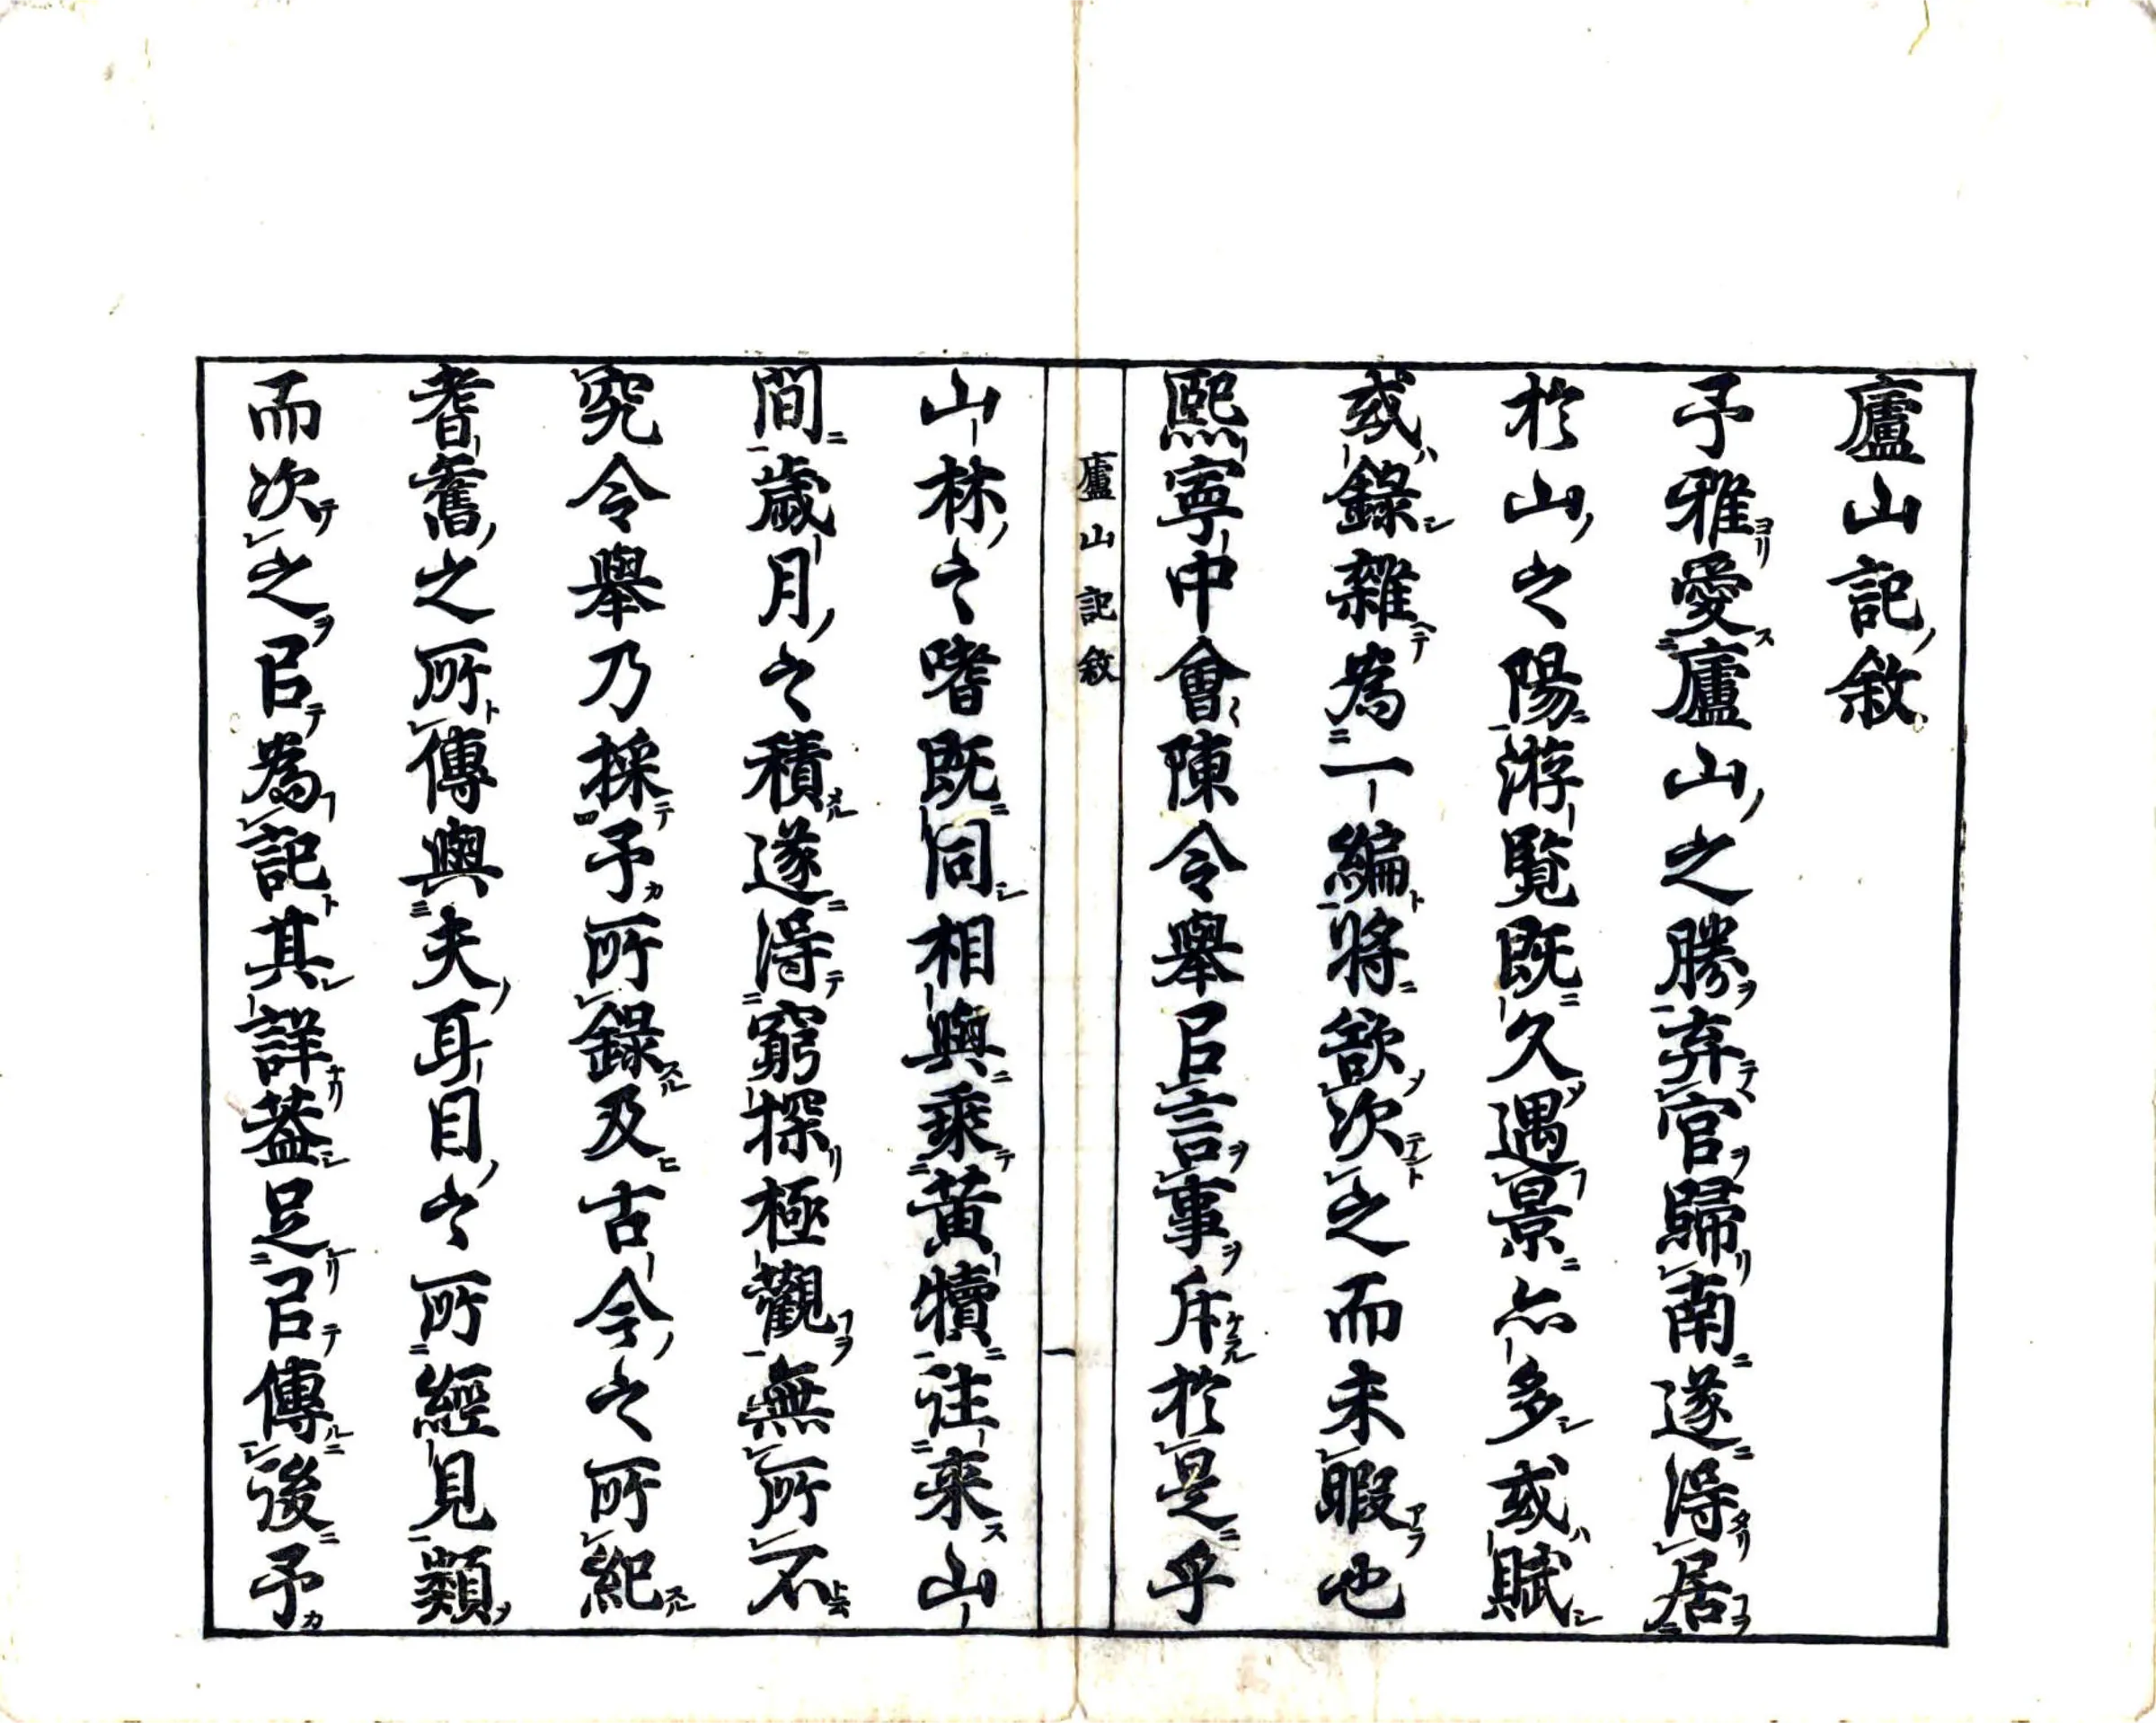 廬山記敘
予雅愛廬山之勝弃官歸南遂得居
於山之陽游覧既久遇景亦多或賦
或錄雜為一編將欲次之而未暇也
熙寧中會陳令舉㠯言事斥於是乎
廬山記敘 一
山林之嗜既同相與乘黃犢往来山
間歲月之積遂得窮探極觀無所不
究令舉乃採予所錄及古今之所紀
耆舊之所傳與夫耳目之所經見類
而次之㠯為記其詳葢足㠯傳後予